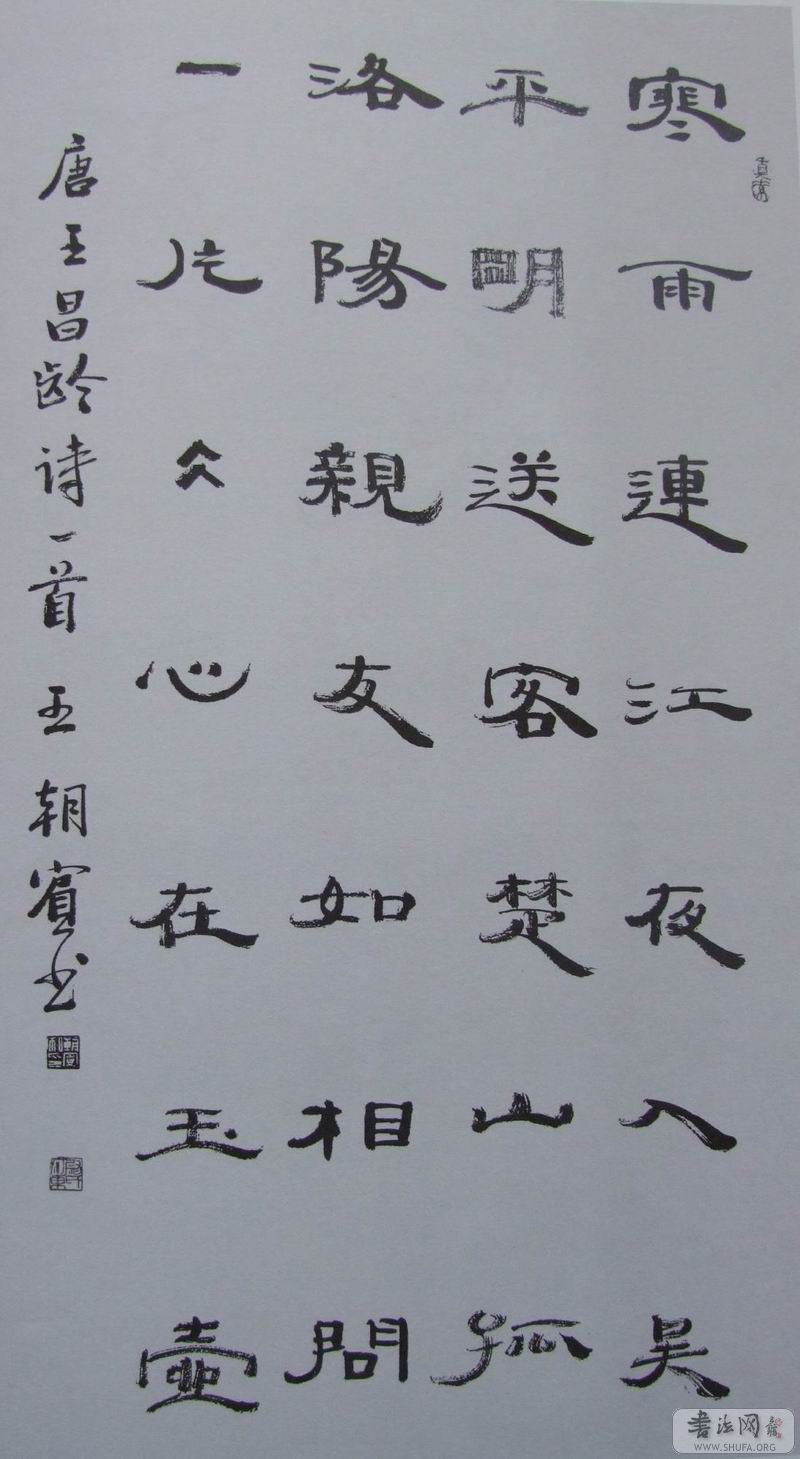 寒雨連江夜入吴
平明送客楚山孤
洛陽親友如相問
一片久心在玉壺
唐王昌龄诗一首 王朝賓书
書法网
WWW.SHUFA.ORG